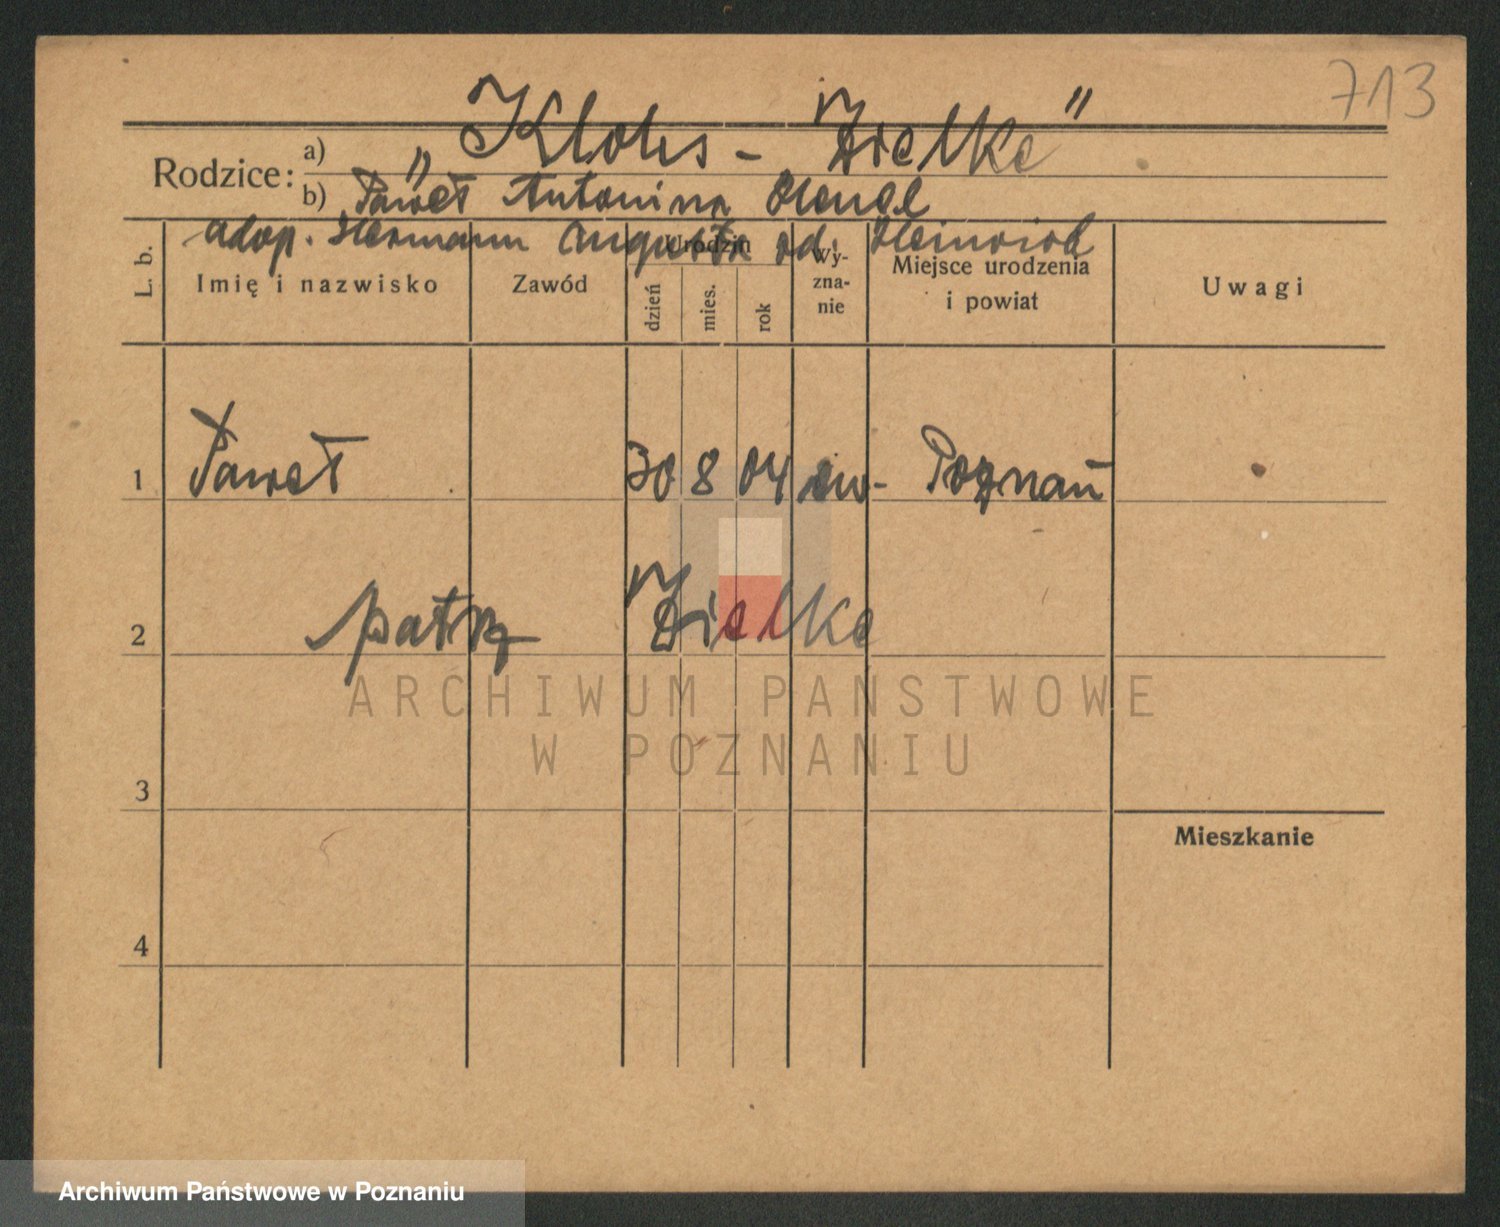 713
„Klohs - Zielke"
Rodzice: a)
b) Paweł Antonina
adop. Hermann Augusta od. Heinrich
L. b. Imię i nazwisko Zawód Urodzin dzień mies. rok Wy-zna-nie Miejsce urodzenia i powiat Uwagi
1 Paweł 30 8 04 ew- Poznań
2 patrz Zielke
3
Mieszkanie
4
ARCHIWUM PAŃSTWOWE
W POZNANIU
Archiwum Państwowe w Poznaniu